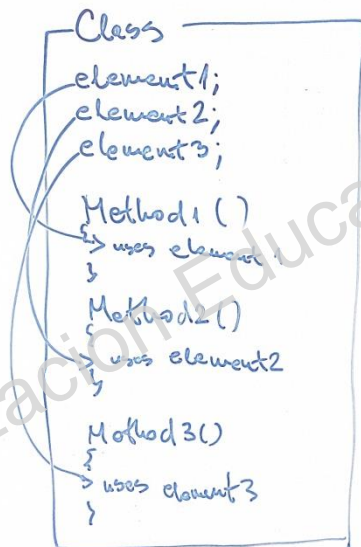 Class
element1;
element2;
element3;
Method1 ()
{
uses element 1
}
Method2()
{
uses element2
}
Method3()
{
uses element3
}